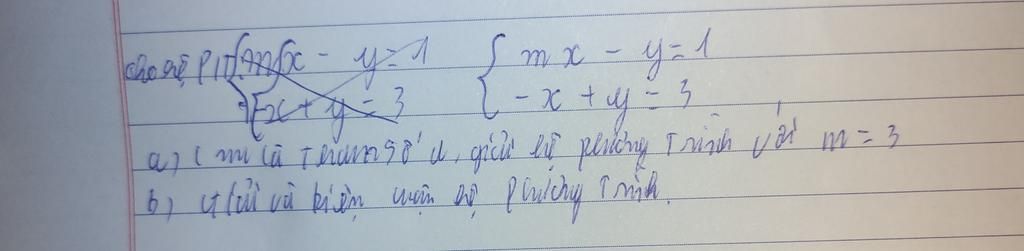 cho hệ PT { mx - y = 1 { mx - y = 1
{ -x + y = 3 { -x + y = 3
a) ( m là tham số ), giải hệ phương trình với m = 3
b) giải và biện luận hệ phương trình.